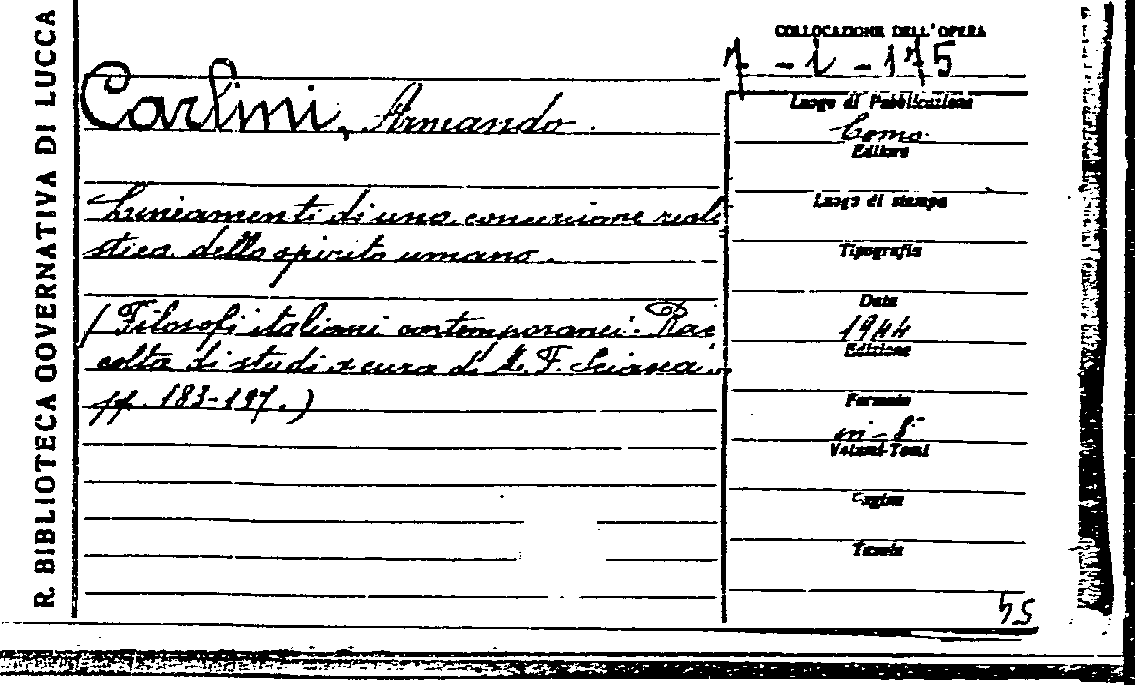 R. BIBLIOTECA GOVERNATIVA DI LUCCA
COLLOCAZIONE DELL'OPERA
7 - 1 - 175
Carlini, Armando.
Lineamenti di una concezione reali
stica dello spirito umano.
(Filosofi italiani contemporanei. Rac
colta di studi a cura di M. F. Sciacca
pp. 183-197.)
Luogo di Pubblicazione
Como.
Editore
Luogo di stampa
Tipografia
Data
1944
Edizione
Formato
in-8°
Volumi-Tomi
Pagine
Tavole